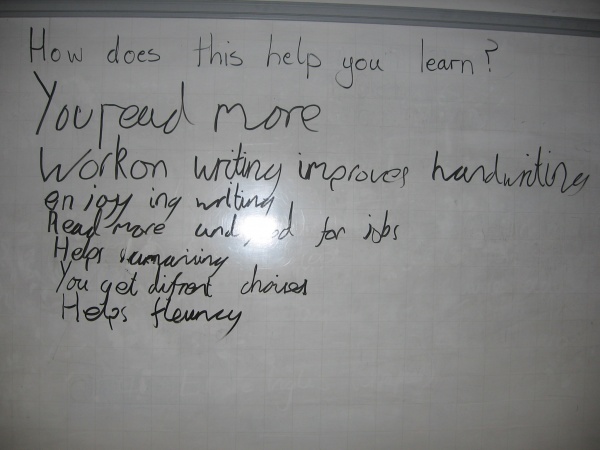 How does this help you learn?
You read more
Work on writing improves handwriting
enjoy ing writing
Read more and for jobs
Helps
You get difrent choices
Helps fleuncy